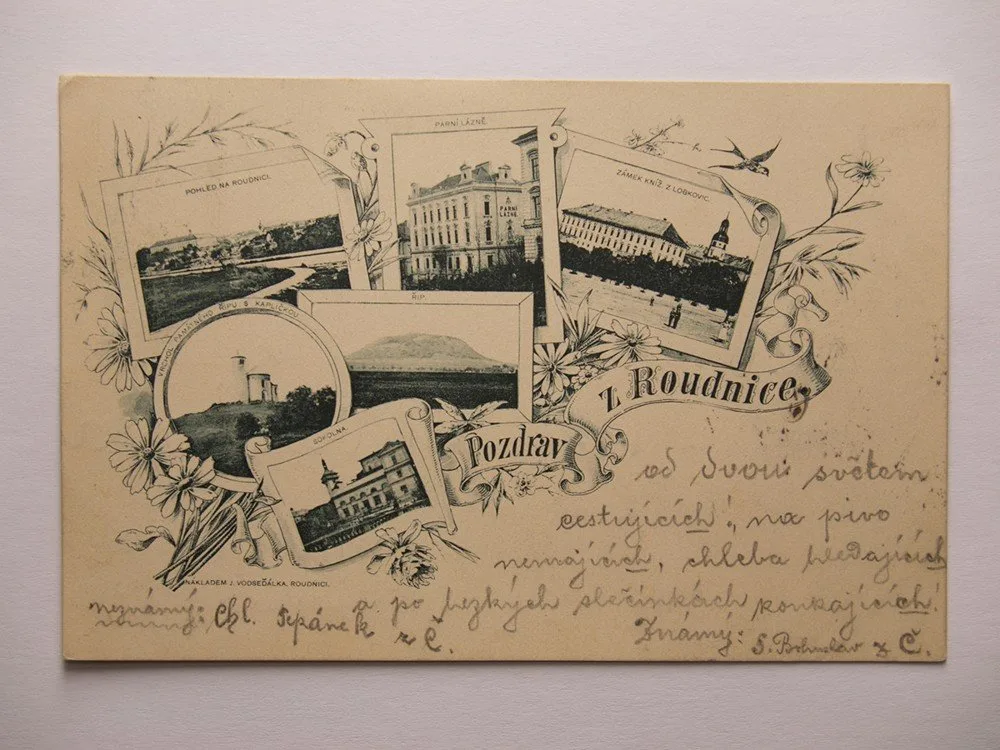 POHLED NA ROUDNICI.
PARNÍ LÁZNĚ
PARNÍ
LÁZNĚ
ZÁMEK KNÍŽ Z LOBKOVIC.
VRCHOL PAMÁTNÉHO ŘÍPU S KAPLIČKOU
ŘÍP.
SOKOLNA.
Pozdrav
z Roudnice
od dvou světem
cestujících, na pivo
nemajících, chleba hledajících
a po hezkých slečinkách koukajících!
neznámý: Chl. Štpánek
z Č.
Známý: S. Bohuslav z Č.
NÁKLADEM J. VODSEĎÁLKA, ROUDNICI.